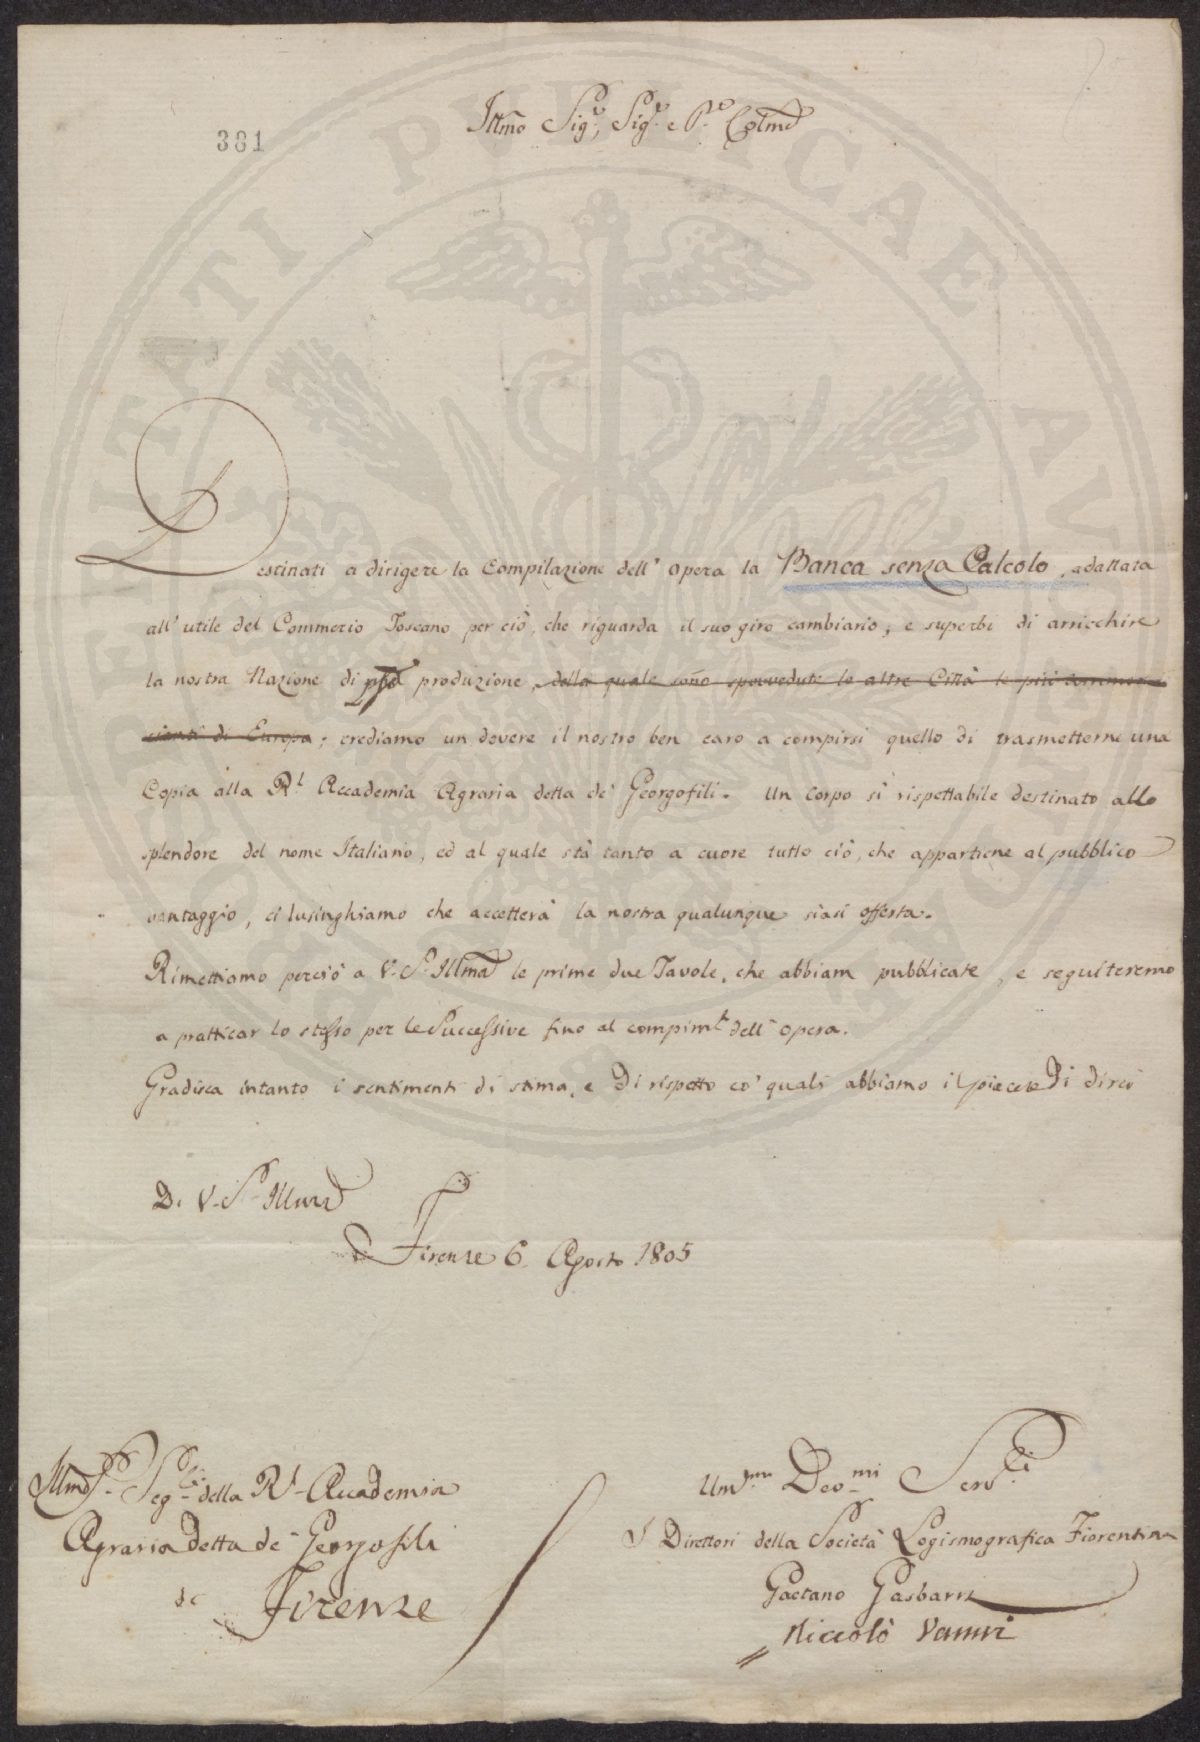 381
Illmo Sig.r, Sig.r e P.ne Colmo
Destinati a dirigere la Compilazione dell' Opera la Banca senza Calcolo, adattata
all' utile del Commercio Toscano per ciò, che riguarda il suo giro cambiario; e superbi di arricchire
la nostra Nazione di produzione, della quale sono sprovedute le altre Città le più commer=
cianti di Europa; crediamo un dovere il nostro ben caro a compirsi quello di trasmetterne una
Copia alla R.l Accademia Agraria detta de' Georgofili. Un Corpo sì rispettabile destinato allo
splendore del nome Italiano, ed al quale stà tanto a cuore tutto ciò, che appartiene al pubblico
vantaggio, ci lusinghiamo che accetterà la nostra qualunque siasi offerta.
Rimettiamo perciò a V. S. Illma le prime due Tavole, che abbiam pubblicate, e seguiteremo
a pratticar lo stesso per le Successive fino al compim.to dell' Opera.
Gradisca intanto i sentimenti di stima, e di rispetto co' quali abbiamo il piacere di dirci
Di V. S. Illma
Firenze 6 Agosto 1805
Illmo Sig.r Seg.rio della R.l Accademia
Agraria detta de' Georgofili
Firenze
Um.mi Dev.mi Serv.i
I Direttori della Società Logismografica Fiorentina
Gaetano Gasbarri
Niccolò Vanni
PUBLICAE